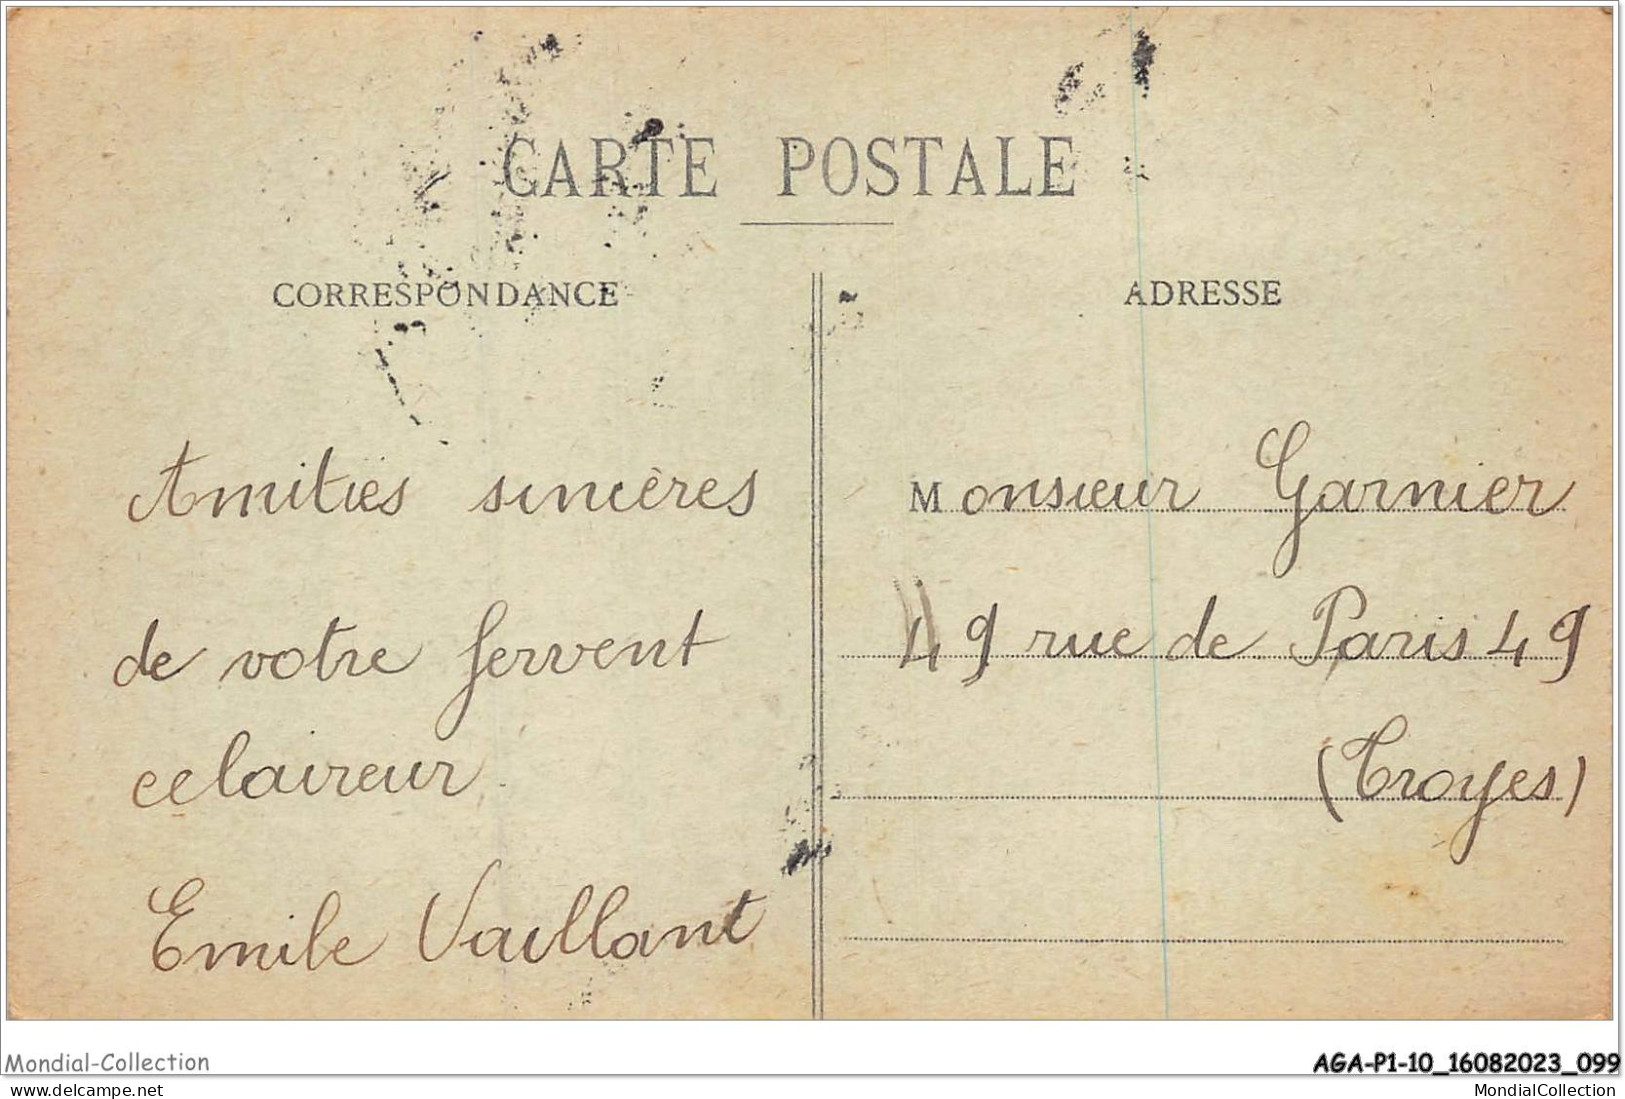 CARTE POSTALE
CORRESPONDANCE
ADRESSE
Amitiés sincères
de votre fervent
eclaireur
Emile Vaillant
Monsieur Garnier
49 rue de Paris 49
(Troyes)
Mondial-Collection
AGA-P1-10_16082023_099
MondialCollection
MondialCollection